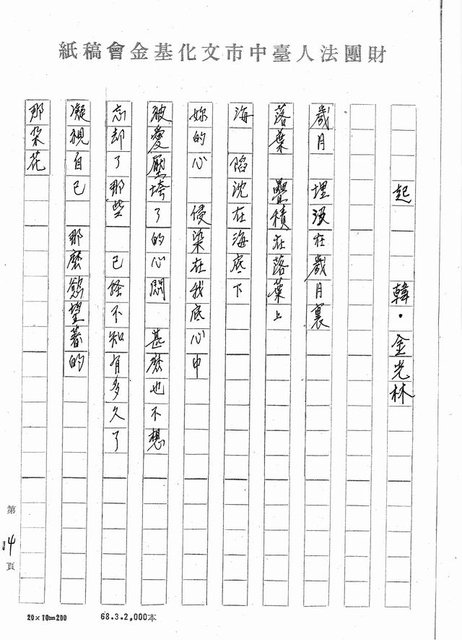 財團法人臺中市文化基金會稿紙
起 韓・金光林
歲月 埋沒在歲月裏
落葉 疊積在落葉上
海 陷沈在海底下
妳的心 侵染在我底心中
被愛壓垮了的心悶 甚麼也不想
忘却了那些 已経不知有多久了
凝視自己 那麼慾望著的
那朵花
第14頁
20×10=200 68.3.2,000本